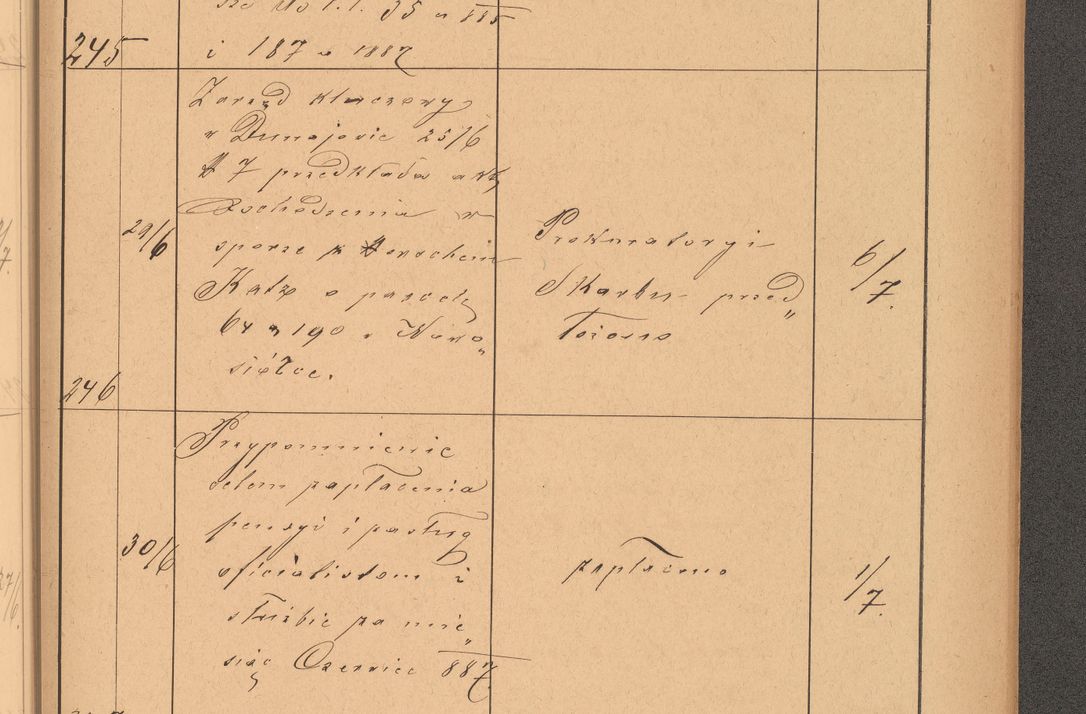 245
i 187 a 1887
Zarząd kluczowy
w Dunajowie 25/6
7 przedkłada akt
dochodzenia w
29/6
sporze
Katz o parcele
64 a 190 w Nowo„
siółce.
Prokuratoryi
Skarbu przed„
łożono
6/7.
246
Przypomnienie
celem zapłacenia
pensyi i zasług
30/6
oficialistom i
służbie za mie„
siąc Czerwiec 887.
zapłacono
1/7.